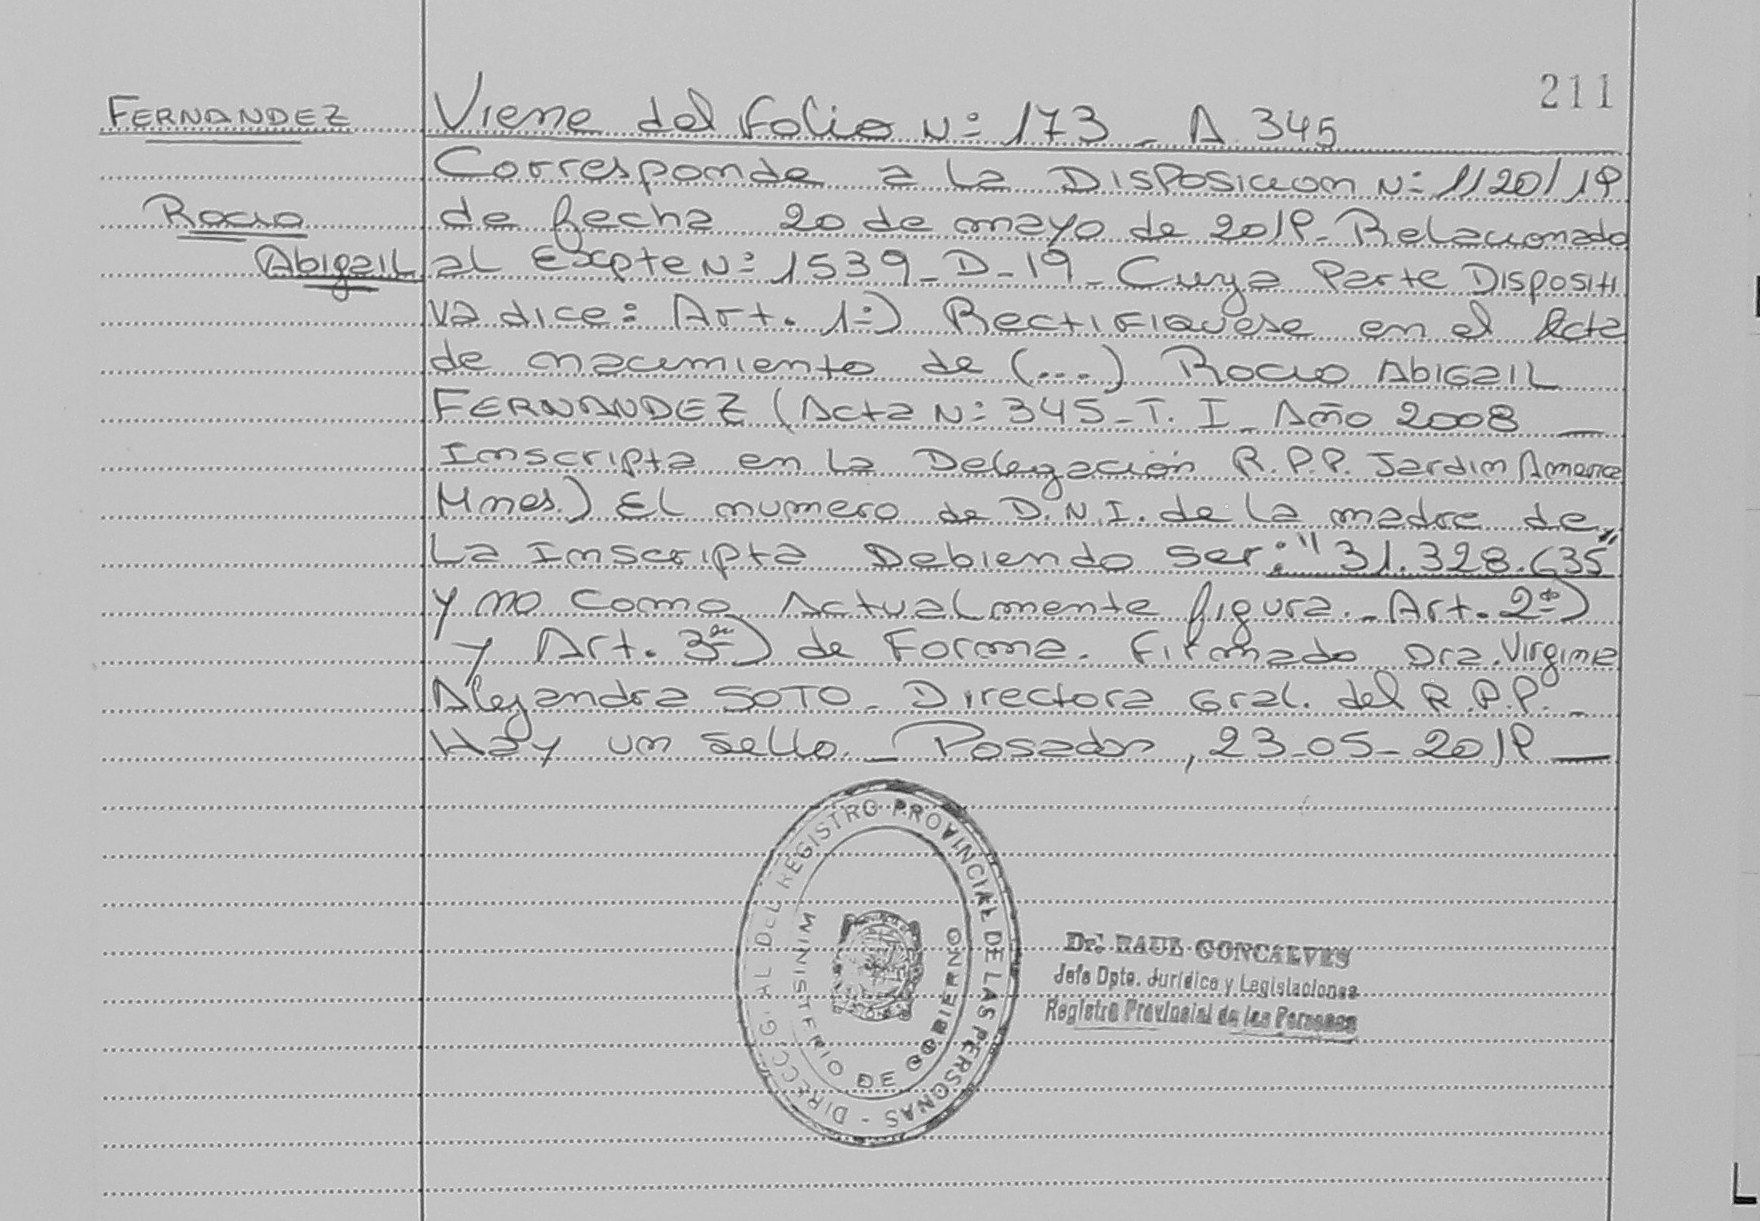 211
FERNANDEZ
Rocio
Abigail
Viene del folio N: 173 - A 345
Corresponde a la Disposicion N: 1120/19
de fecha 20 de mayo de 2019 - Relacionado
al Expte N: 1539 - D - 19 - Cuya Parte Dispositi
va dice: Art. 1:) Rectifiquese en el Acta
de nacimiento de (...) Rocio Abigail
FERNANDEZ (Acta N: 345 - T. I - Año 2008 —
Inscripta en la Delegación R.P.P. Jardin America
Mnes.) El numero de D.N.I. de la madre de
La Inscripta Debiendo ser: "31.328.635"
y no como Actualmente figura. - Art. 2º)
y Art. 3º) de Forma. Firmado Dra. Virginia
Alejandra SOTO - Directora Gral. del R.P.P. -
Hay un sello. - Posadas, 23-05-2019 —
DIRECC. G. AL DEL REGISTRO PROVINCIAL DE LAS PERSONAS -
MINISTERIO DE GOBIERNO
Dr. RAUL GONCALVES
Jefe Dpto. Jurídico y Legislaciones
Registro Provincial de las Personas